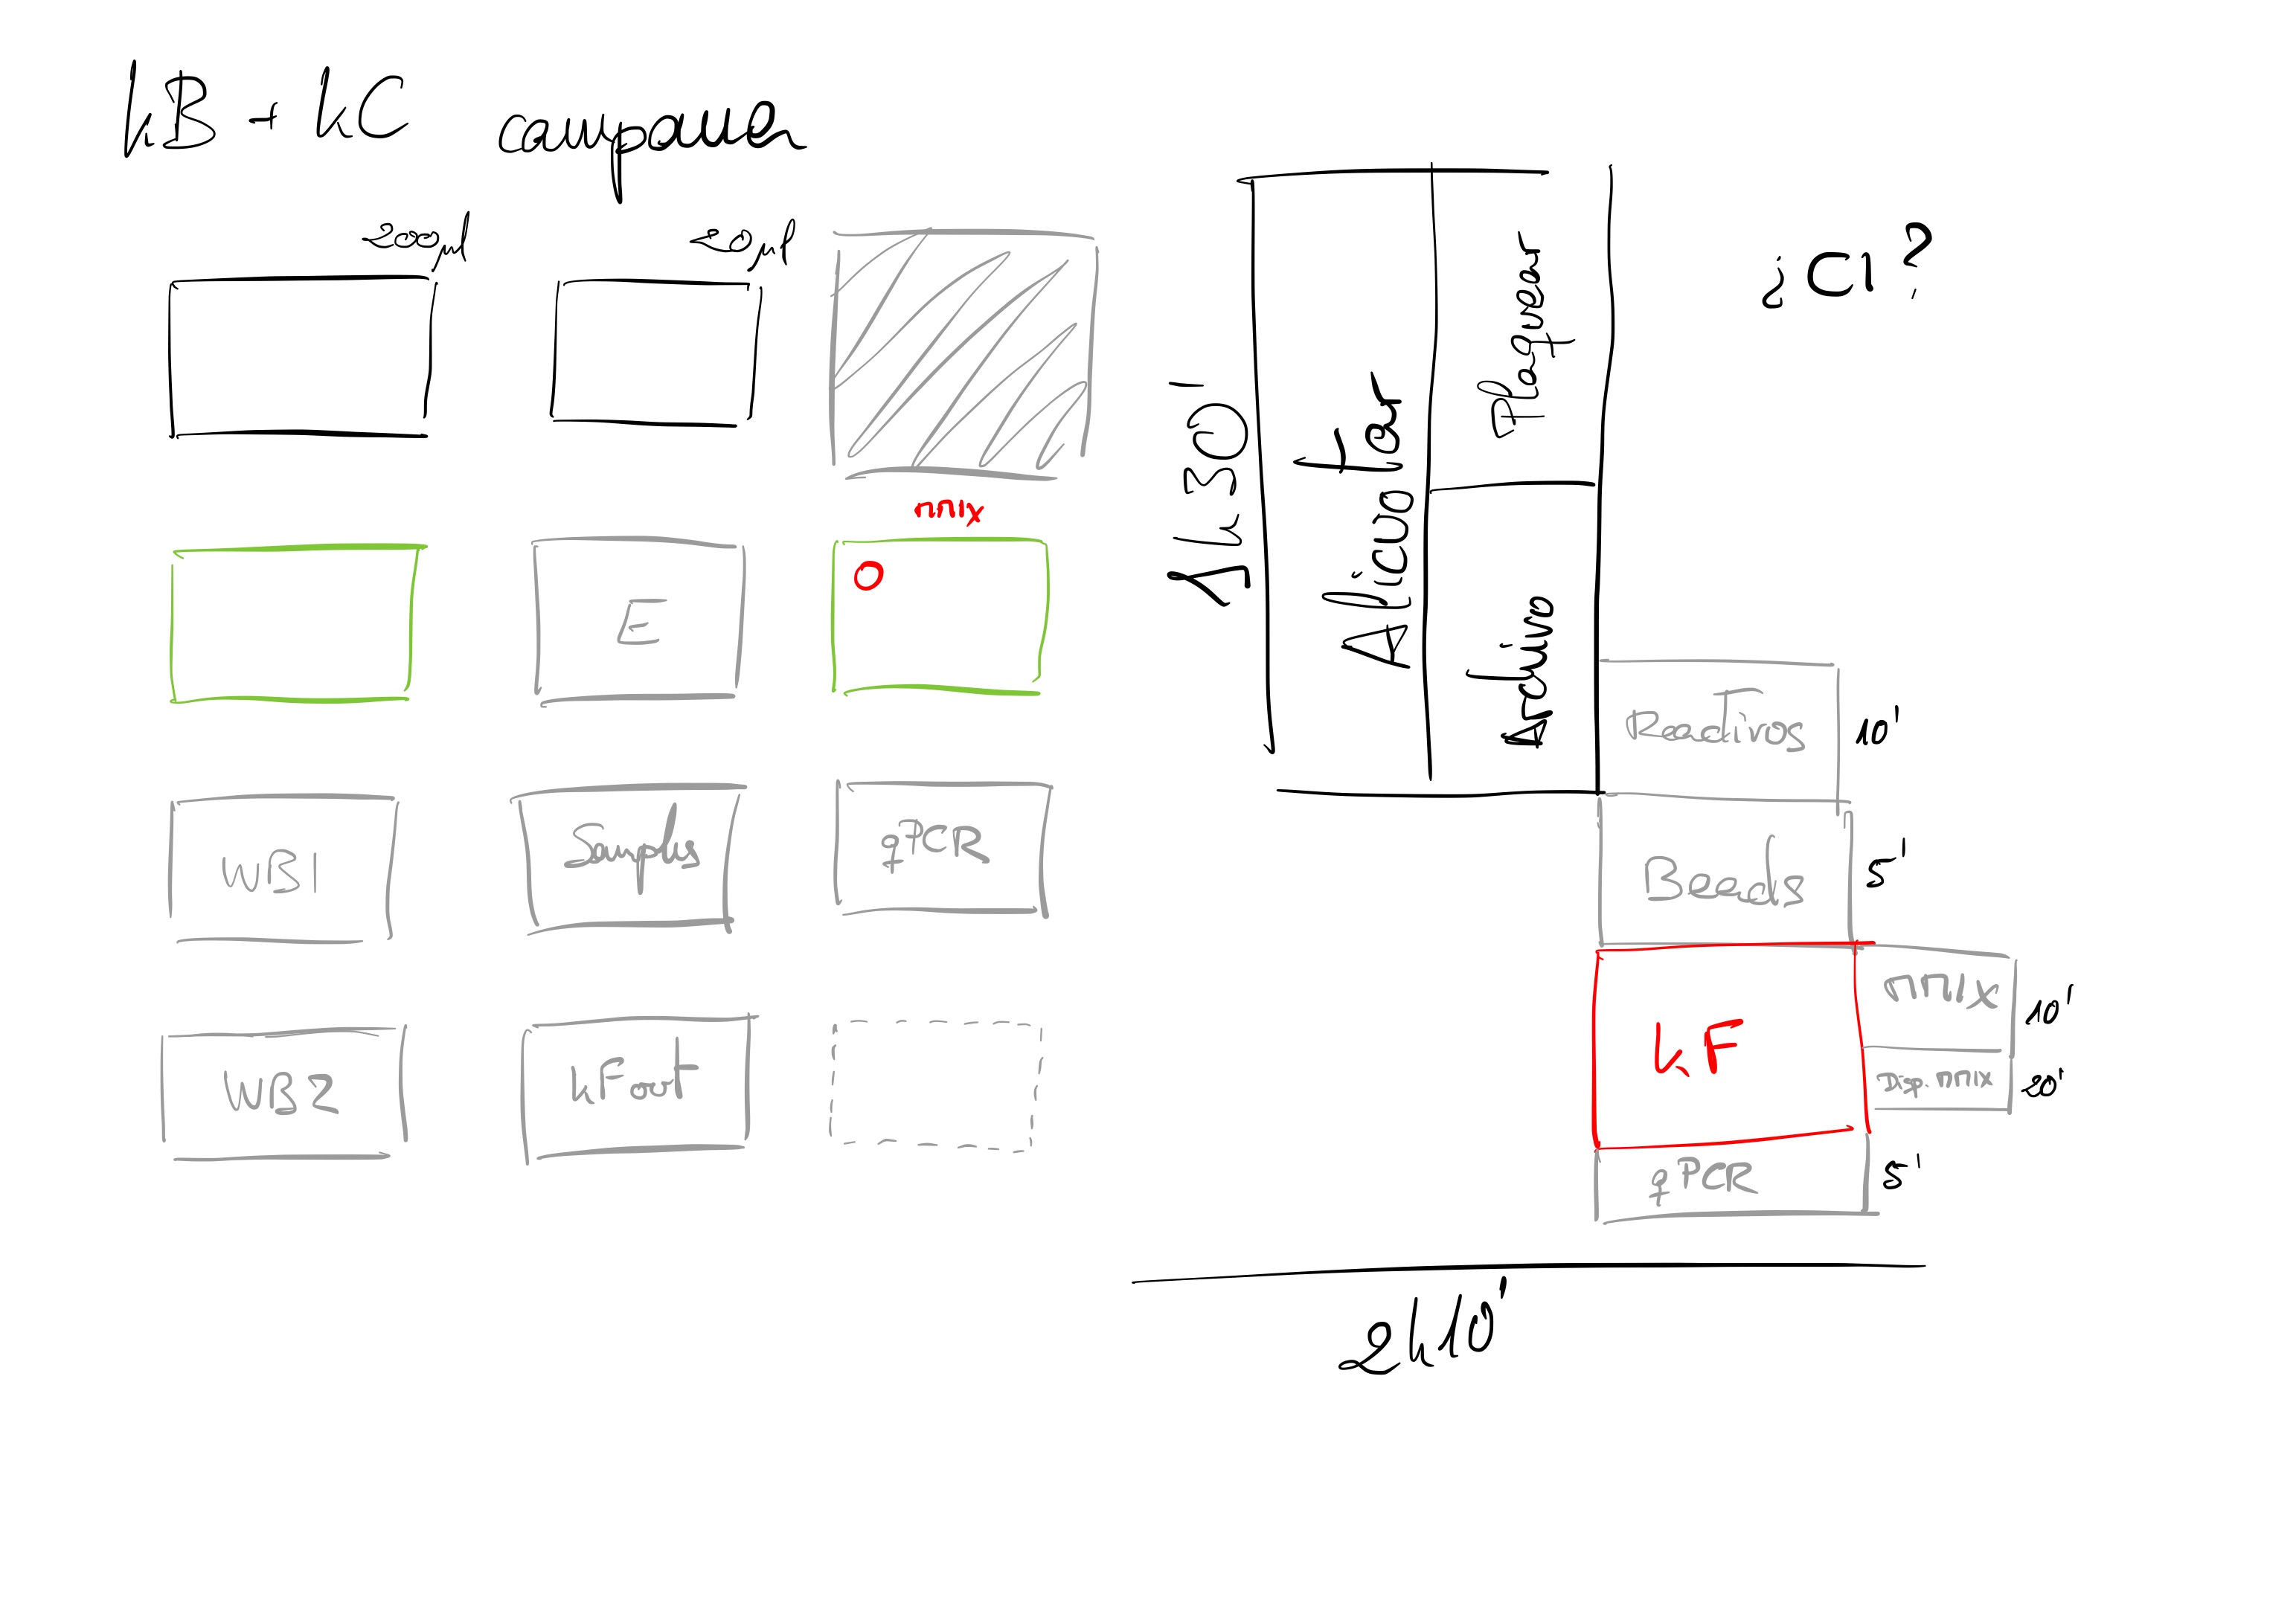 kB + kC campana
200µl
20µl
MMIX
E
WB1
Samples
qPCR
WB2
KFoot
1h30'
Alicuotar
Plaquear
Archivo
¿CI?
Reactivos
10'
Beads
5'
KF
MMIX
10'
Disp. MMIX
20'
qPCR
5'
2h10'